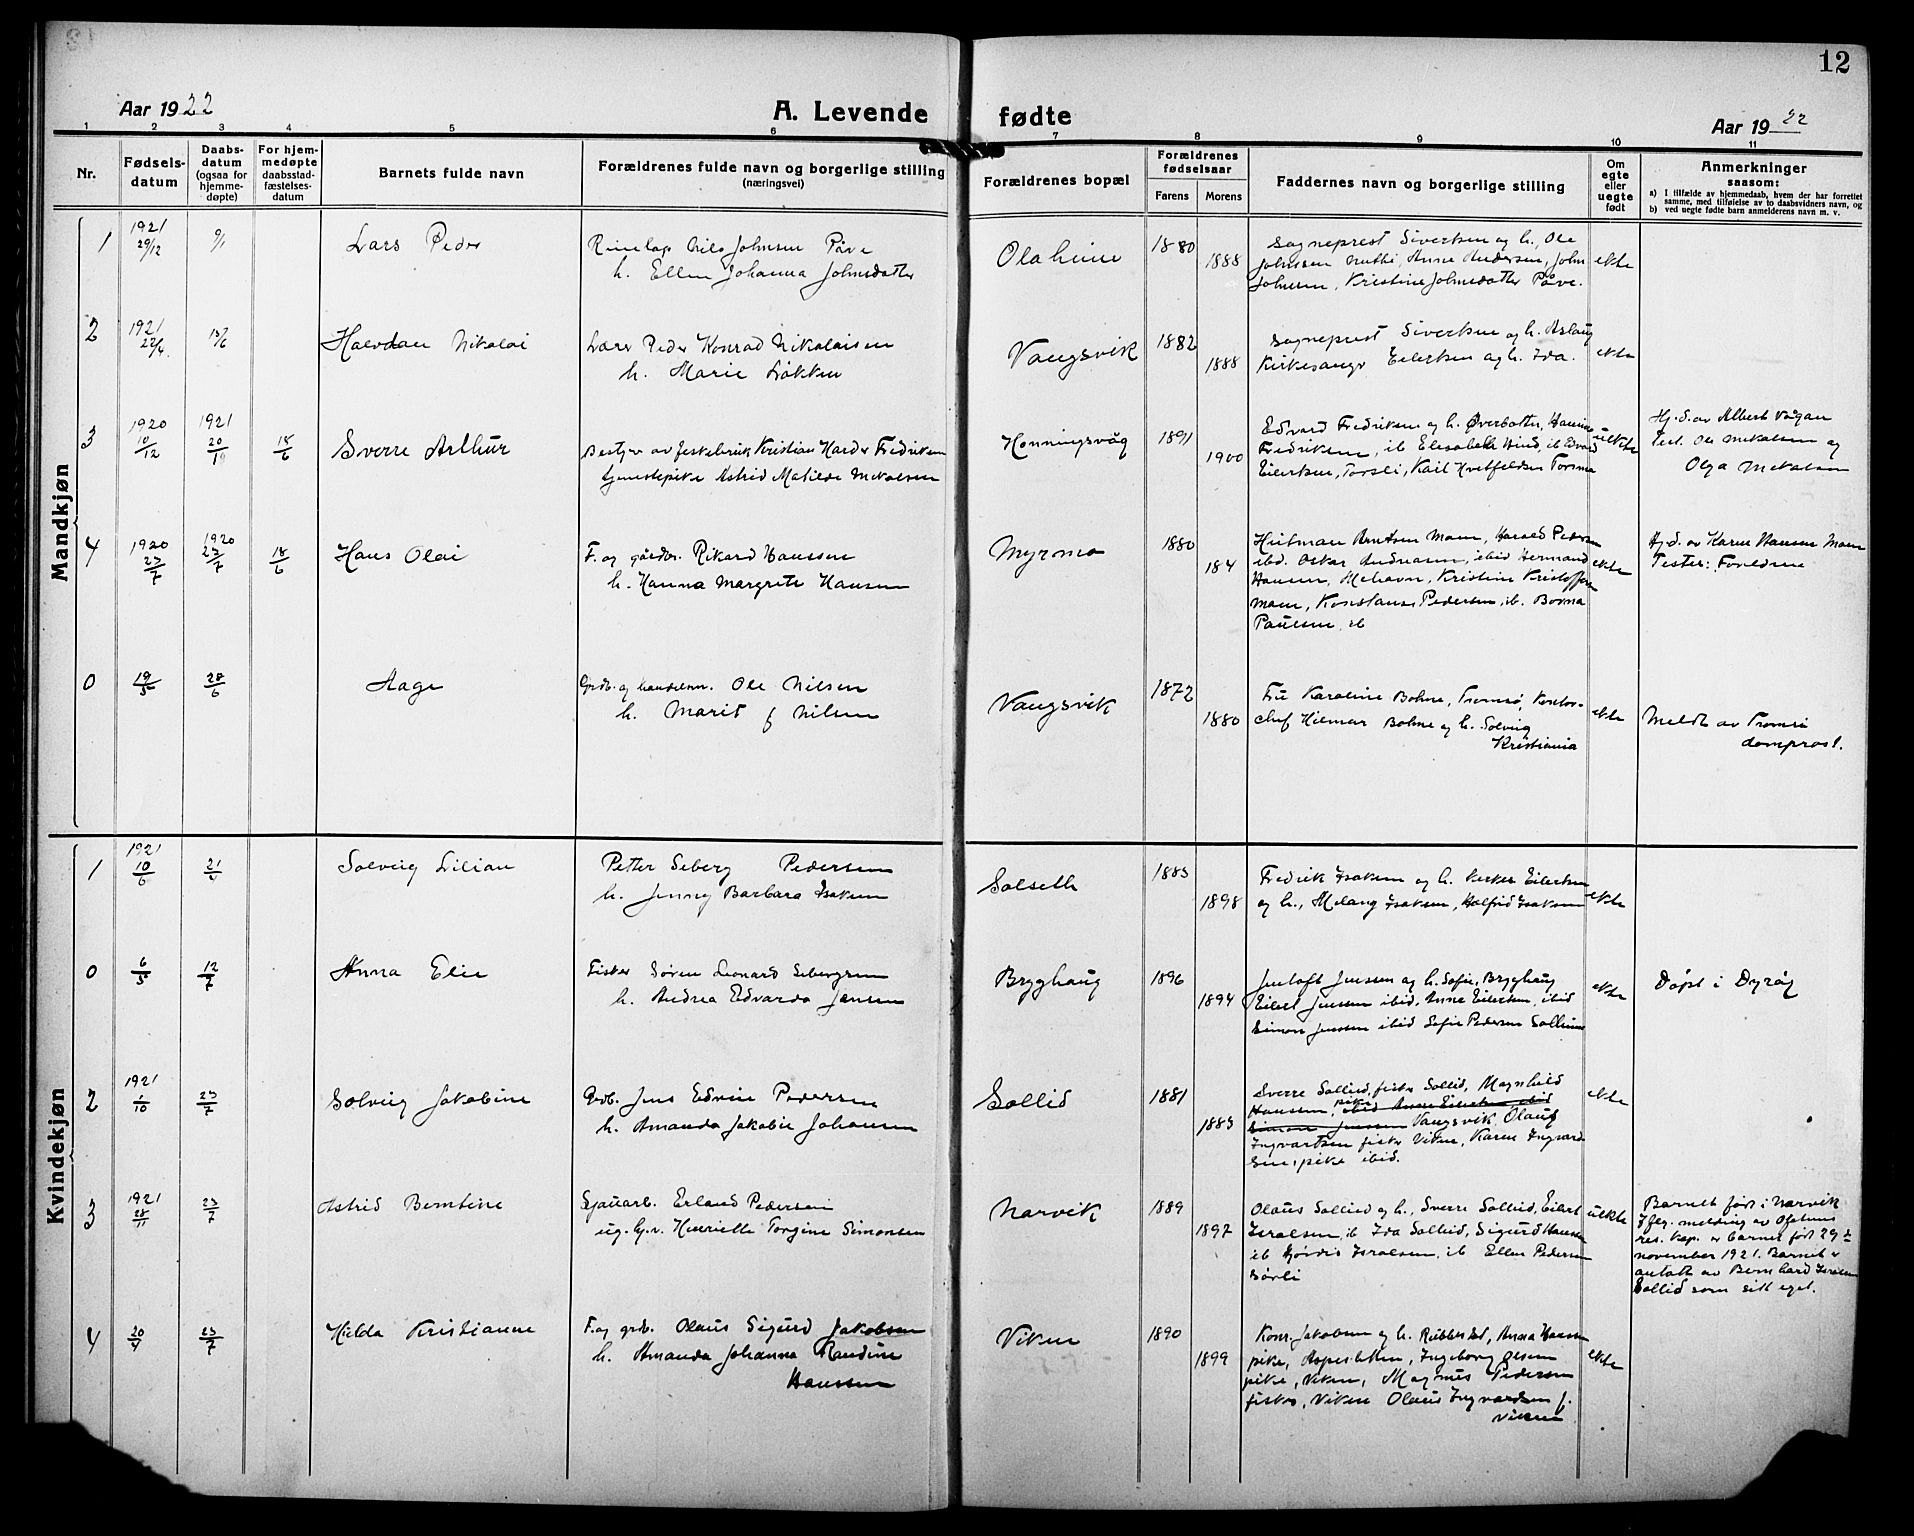 12
Aar 1922
A. Levende fødte
Aar 1922
1 2 3 4 5 6 7 8 9 10 11
Nr.
Fødsels-
datum
Daabs-
datum
(ogsaa for
hjemme-
døpte)
For hjem-
medøpte
daabsstad-
fæstelses-
datum
Barnets fulde navn
Forældrenes fulde navn og borgerlige stilling
(næringsvei)
Forældrenes bopæl
Forældrenes
fødselsaar
Farens Morens
Faddernes navn og borgerlige stilling
Om
egte
eller
uegte
født
Anmerkninger
saasom:
a) I tilfælde av hjemmedaab, hvem der har forrettet
samme, med tilføielse av to daabsvidners navn, og
b) ved uegte fødte barn anmelderens navn m. v.
Mandkjøn
1
1921
29/12
Lars Peder
Nils Johnsen Påve
h. Ellen Johanna Johnsdatter
Olaheim
1880
1888
Sogneprest Sivertsen og h., Ole
Johnsen Anne Andersen, John
Johnsen, Kristine Johnsdatter Påve.
ekte
2
1921
22/4.
Halvdan Nikolai
Lærer Peder Konrad Nikolaisen
h. Marie Løkken
Vangsvik
1882
1888
Sogneprest Sivertsen og h. Aslaug
Kirkesanger Eilertsen og h. Ida.
ekte
3
1920
10/12
1921
20/1
18/6
Sverre Arthur
Bestyrer av fiskebruk Kristian Harder Fredriksen
tjenestepike Astrid Matilde Mikalsen
Honningsvåg
1891
1900
Edvard Fredriksen og h. Øverbotten, Hansine
Fredriksen, ib Elisabeth Hind, ib Edvard
Eilertsen, Torsli, Karl Kvitfeldsen Tormo
uekte
Hj. d. av Albert Vågan
Test. Ole Mikalsen og
Olga Mikalsen
4
1920
23/7
1920
23/7
18/6
Hans Olai
F. og gårdbr. Rikard Hanssen
h. Hanna Margrete Hansen
Myrmo
1880
184
Hilmar Arntsen Moen, Harald Pedersen
ibd. Oskar Andreasen, ibid Hermand
Hansen, Mehavn, Kristine Kristoffersen
Moen, Konstanse Pedersen, ib. Borna
Paulsen, ib
ekte
Hj. d. av Karen Hansen Moen
Tester: Foreldrene
0
19/5
28/6
Aage
Grdb. og handelsm. Ole Nilsen
h. Marit f Nilsen
Vangsvik
1872
1880
Fru Karoline Bohne, Tromsø, Kontor-
chef Hilmar Bohne og h. Solveig
Kristiania
ekte
Meldt av Tromsø
domprost.
Kvindekjøn
1
1921
10/6
21/4
Solveig Lilian
Petter Seberg Pedersen
h. Jenny Barbara Isaksen
Solseth
1885
1898
Fredrik Isaksen og h. Kirkes. Eilertsen
og h., Melang Isaksen, Halfrid Isaksen
ekte
0
6/5
12/7
Anna Elie
Fisker Søren Leonard Sebergsen
h. Andrea Edvarda Jensen
Brygghaug
1896
1894
Jentoft Jenssen og h. Sofie, Brygghaug
Eilert Jenssen ibid, Anne Eilertsen, ibid
Simon Jenssen ibid Sofie Pedersen Solheim
ekte
Døpt i Dyrøy
2
1921
1/10
23/7
Solveig Jakobine
Grdb. Jens Edvin Pedersen
h. Amanda Jakobie Johansen
Sollid
1881
1883
Sverre Sollied, fisker Sollid, Magnhild
Hanssen, pike, ibid Anne Eilertsen ibid
Simon Jenssen Vangsvik, Olaus
Ingvartsen fisker Viken, Karen Ingvard-
sen, pike ibid.
ekte
3
1921
28/11
23/7
Astrid Berntine
Sjauarb. Erland Pedersen
ug. Henriette Torgine Simonsen
Narvik
1889
1897
Olaus Sollied og h., Sverre Sollied, Eilert
Isralsen, ib Ida Sollied, Sigurd Hansen
ib Hjørdis Isralsen, ib Ellen Pedersen
Sørli
uekte
Barnet født i Narvik
Iføg. melding av Ofotens
res. kap. er barnet født 29de
november 1921. Barnet er
antatt av Bernhard Isralsen
Sollid som sitt eget.
4
20/4
23/7
Hilda Kristianne
F. og grdb. Olaus Sigurd Jakobsen
h. Amanda Johanna Randine
Hanssen
Viken
1890
1899
Konr. Jakobsen og h. Rubbestad, Anna Hansen
pike, Aspesletten, Ingeborg Olsen
pike, Viken, Magnus Pedersen
fisker, Viken Olaus Ingvardsen f.
Viken
ekte